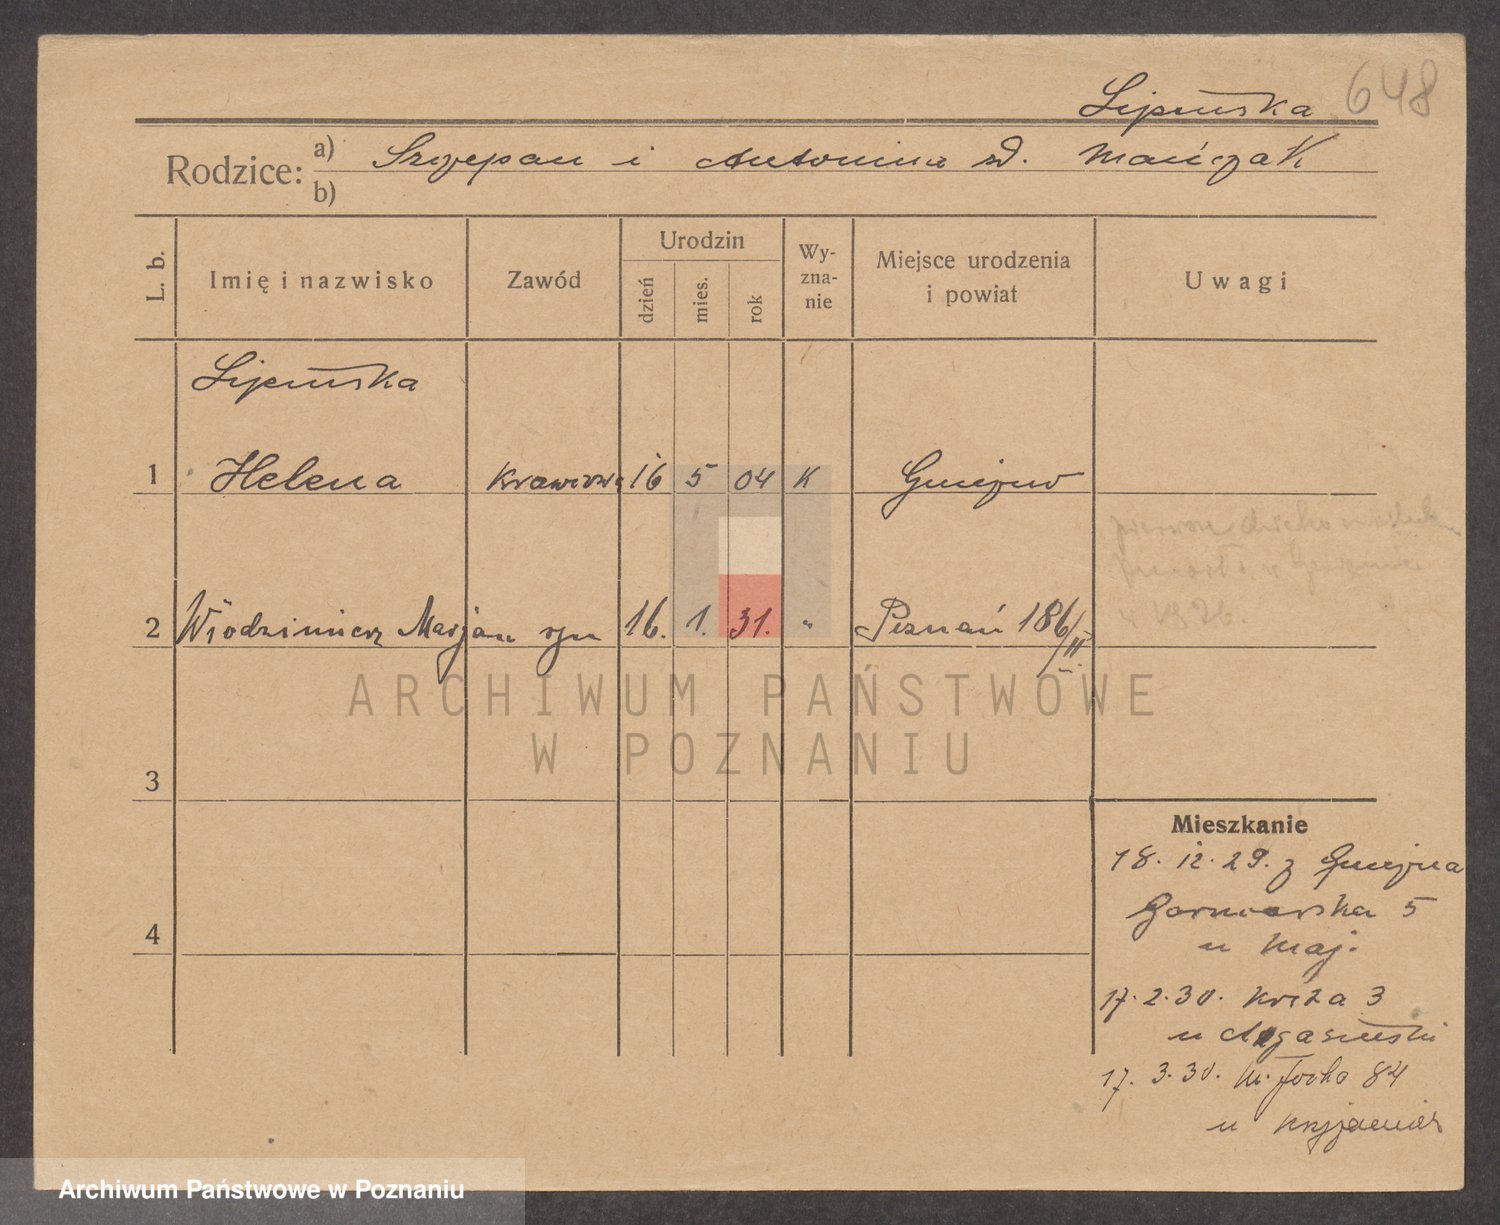 648
Lipińska
Rodzice: a) Szczepan i Antonina zd. Mańczak
b)
L. b.
Imię i nazwisko
Zawód
Urodzin
dzień
mies.
rok
Wy-
zna-
nie
Miejsce urodzenia
i powiat
Uwagi
Lipińska
1 Helena krawcowa 16 5 04 K Gniezno
pierwsze dziecko
w Gnieźnie
1926.
2 Włodzimierz Marjan syn 16. 1. 31. " Poznań 186/II.
ARCHIWUM PAŃSTWOWE
W POZNANIU
3
4
Mieszkanie
18. 12. 29. z Gniezna
Garncarska 5
u Maj.
17. 2. 30. Kręta 3
u
17. 3. 30. M. Focha 84
u
Archiwum Państwowe w Poznaniu